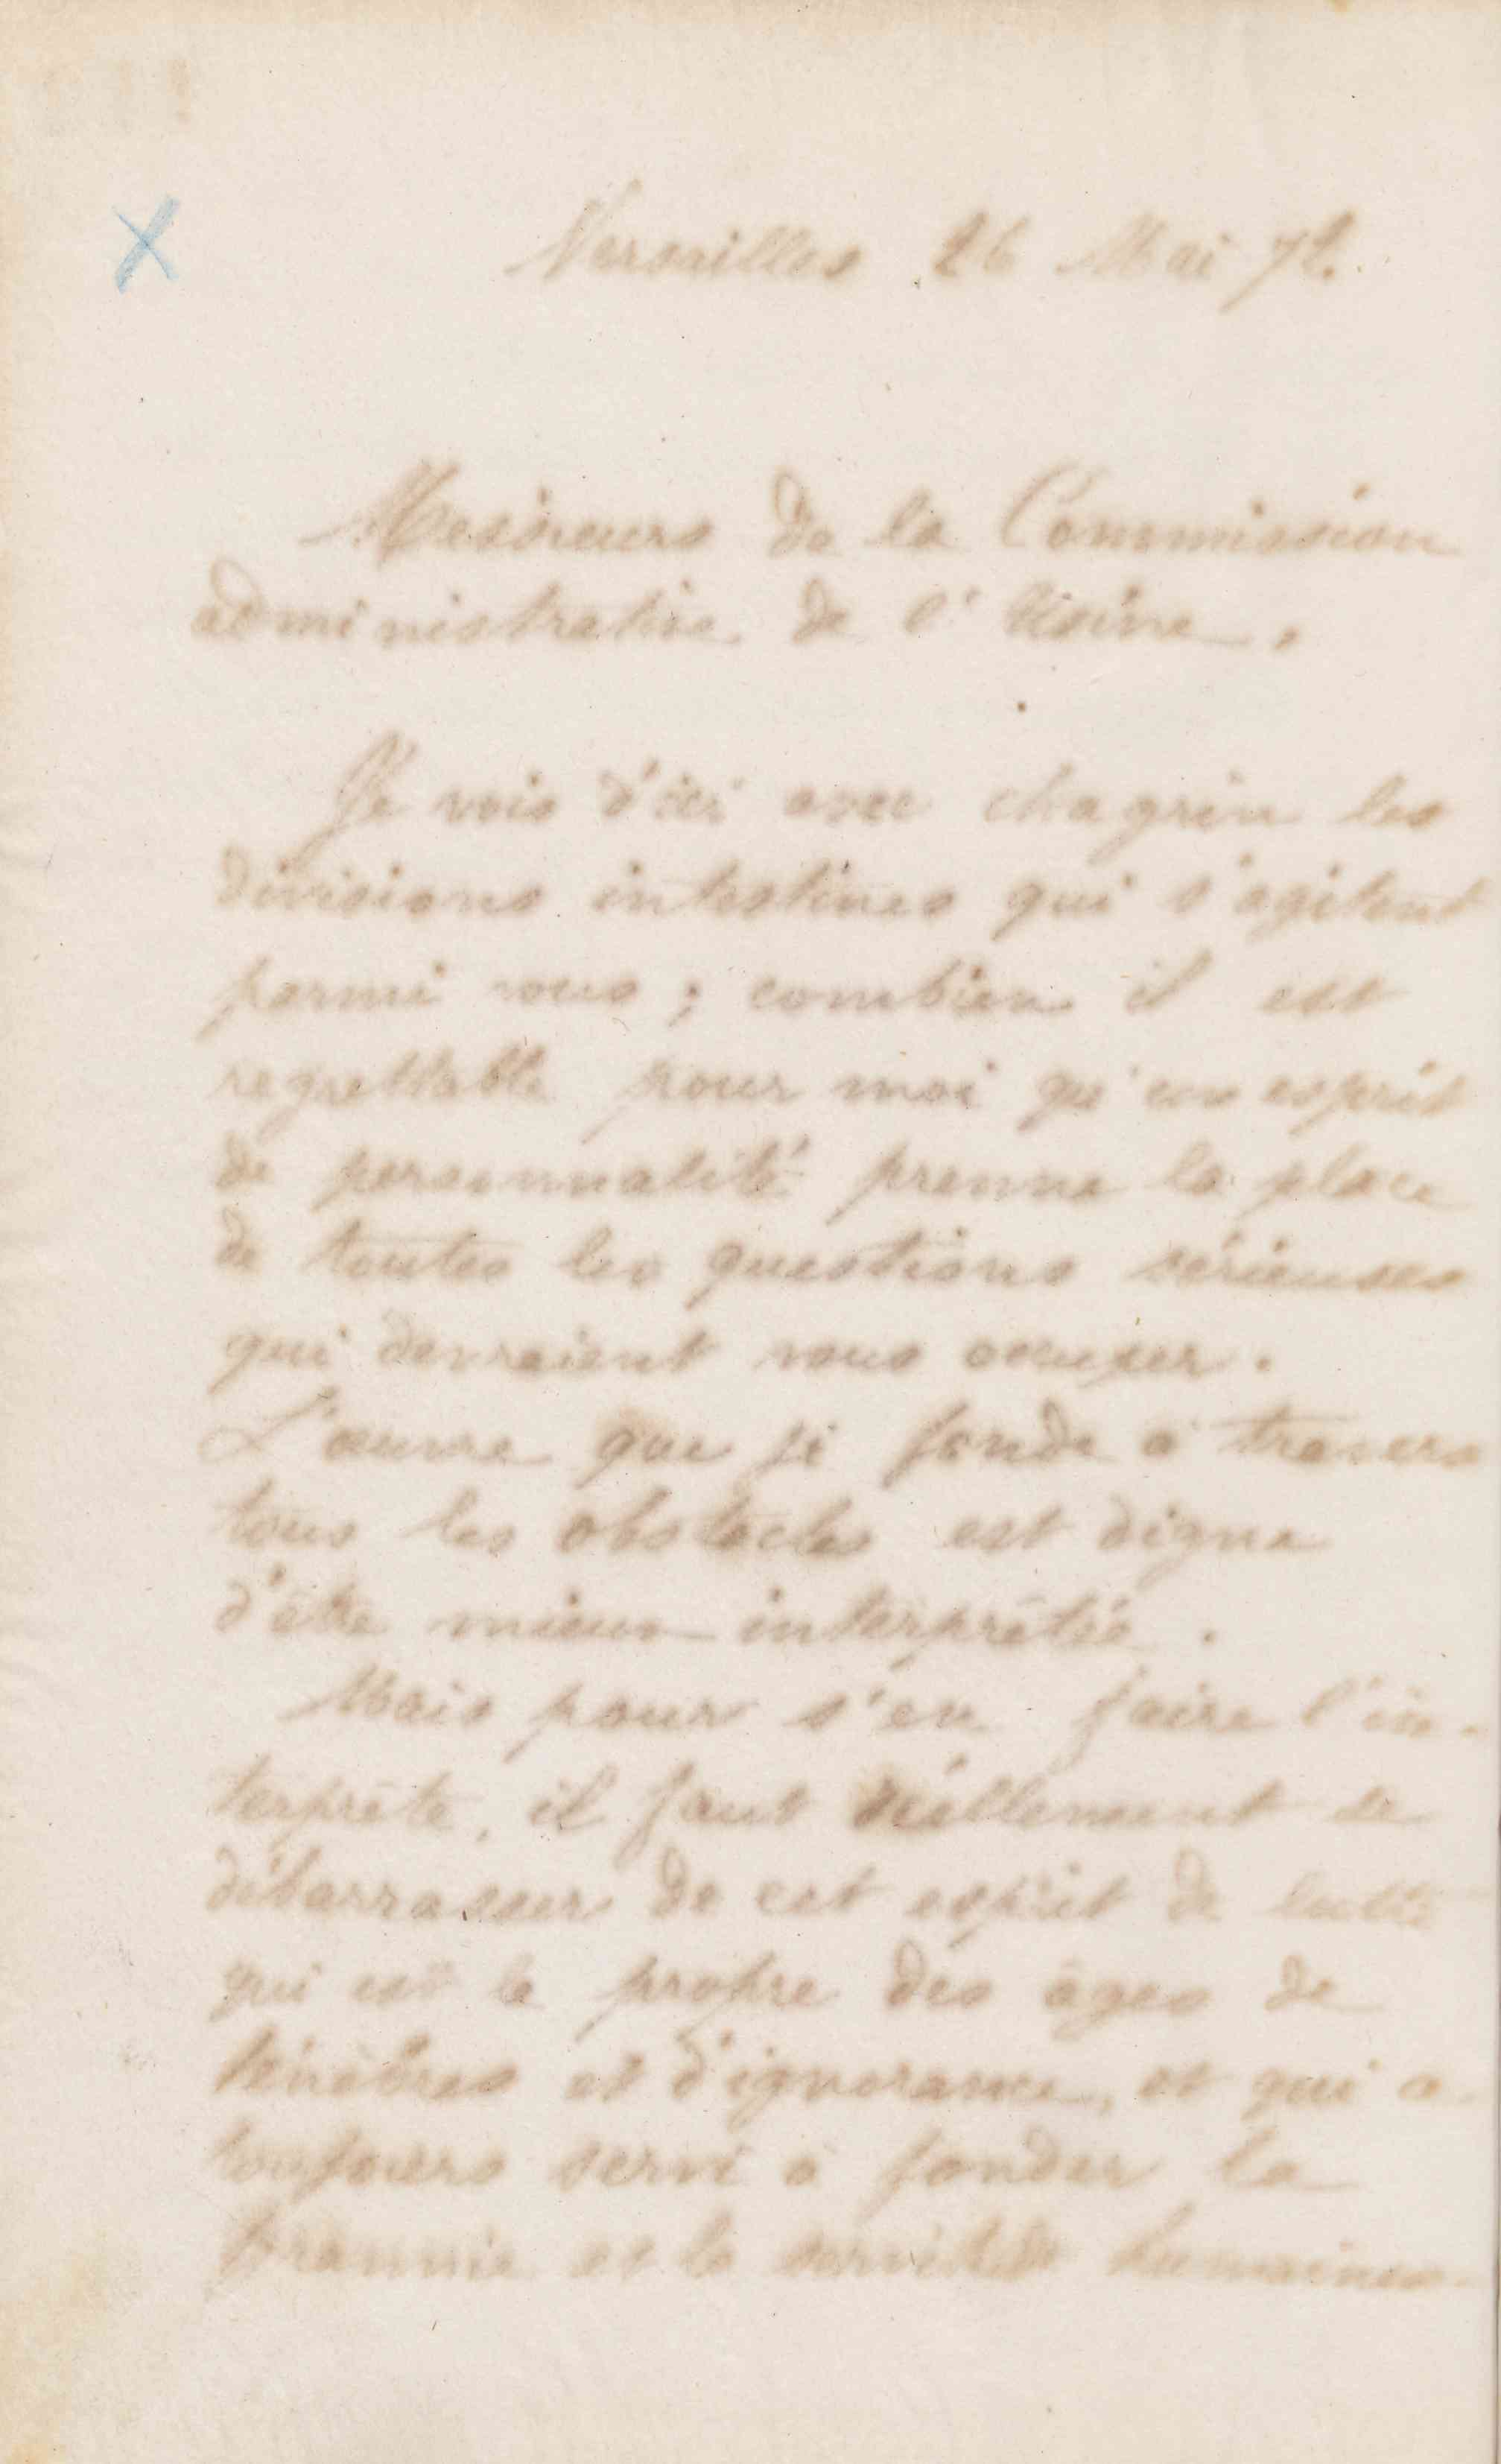 Versailles 26 Mai 72.
Messieurs de la Commission
administrative de l'Usine,
Je vois d'ici avec chagrin les
divisions intestines qui s'agitent
parmi vous ; combien il est
regrettable pour moi qu'un esprit
de personnalité prenne la place
de toutes les questions sérieuses
qui devraient vous occuper.
L'œuvre que je fonde à travers
tous les obstacles est digne
d'être mieux interprétée.
Mais pour s'en faire l'in-
terprète, il faut réellement se
débarrasser de cet esprit de lutte
qui est le propre des âges de
ténèbres et d'ignorance, et qui a
toujours servi à fonder la
tyrannie et la servitude humaines.